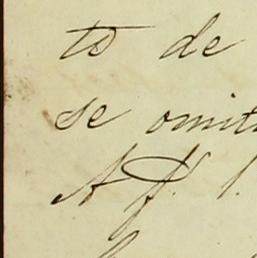 to de
se omit
A